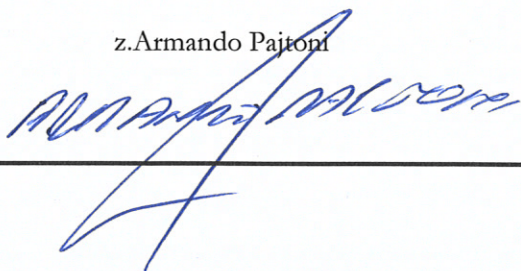 z.Armando Pajtoni
ARMANDO PAJTONI